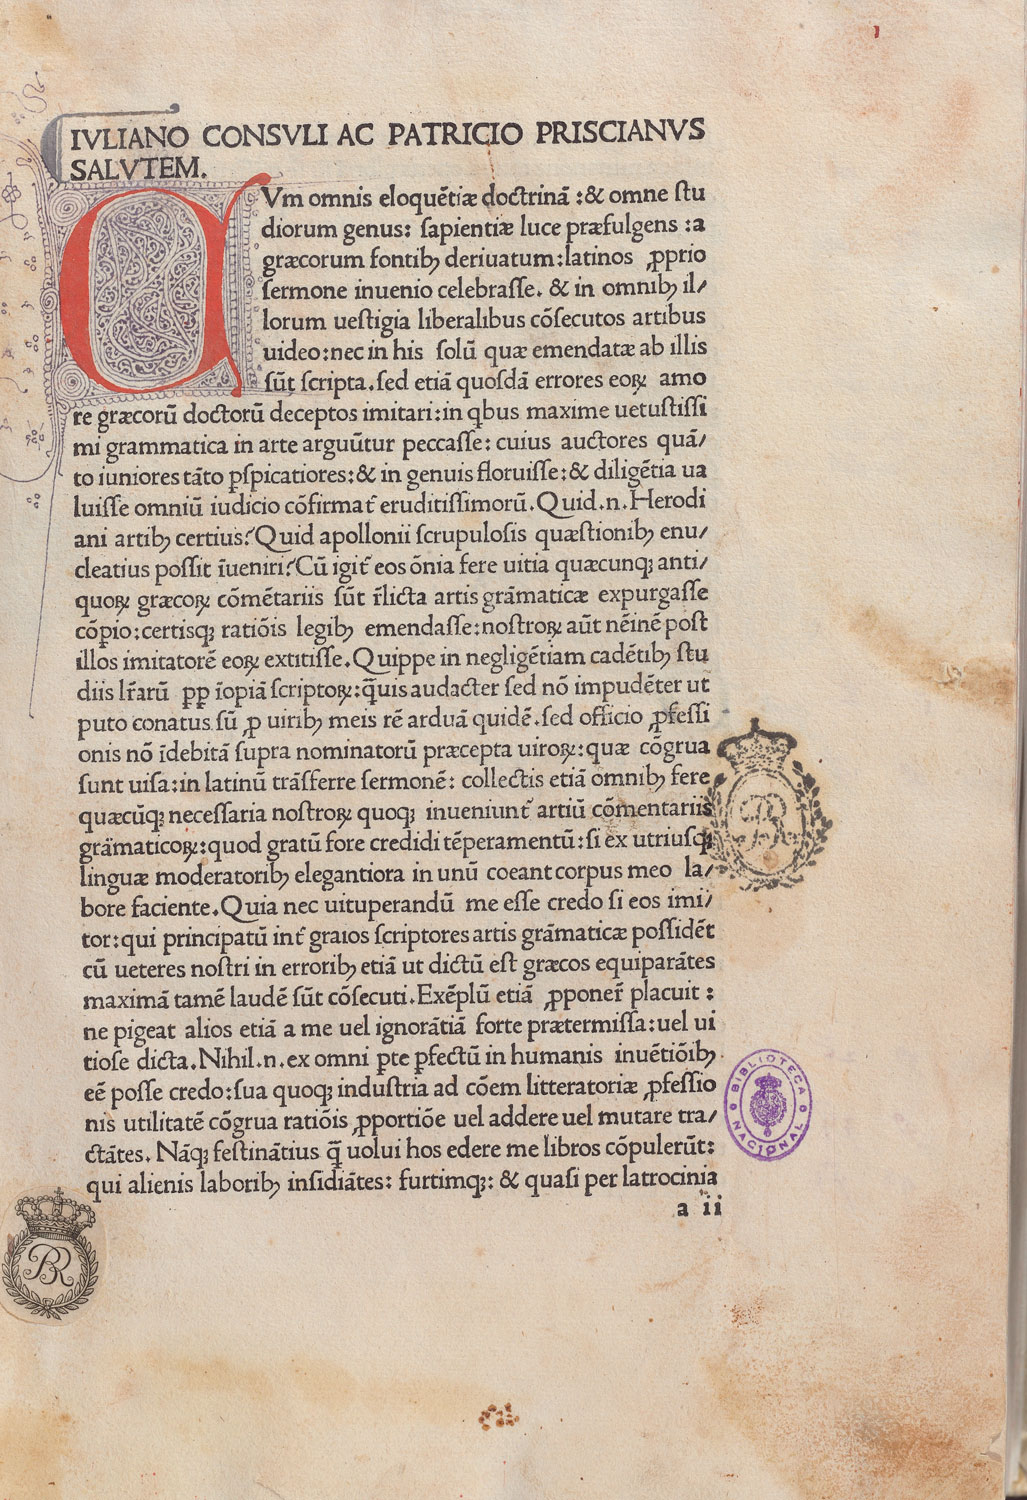 IVLIANO CONSVLI AC PATRICIO PRISCIANVS
SALVTEM.
CVm omnis eloquẽtiæ doctrinã :& omne ſtu
diorum genus: ſapientiæ luce præfulgens :a
græcorum fontibꝫ deriuatum:latinos ꝓprio
ſermone inuenio celebraſſe. & in omnibꝫ il/
lorum ueſtigia liberalibus cõſecutos artibus
uideo:nec in his ſolũ quæ emendatæ ab illis
ſũt ſcripta.ſed etiã quoſdã errores eoꝝ amo
re græcorũ doctorũ deceptos imitari:in qbus maxime uetuſtiſſi
mi grammatica in arte arguũtur peccaſſe: cuius auctores quã/
to iuniores tãto ꝑſpicatiores:& in genuis floruiſſe:& diligẽtia ua
luiſſe omniũ iudicio cõfirmat᷑ eruditiſſimorũ.Quid.n.Herodi
ani artibꝫ certius?Quid apollonii ſcrupuloſis quæſtionibꝫ enu/
cleatius poſſit ĩueniri?Cũ igit᷑ eos õnia fere uitia quæcunqꝫ anti/
quoꝝ græcoꝝ cõmẽtariis ſũt r̃licta artis grãmaticæ expurgaſſe
cõꝑio:certisqꝫ ratiõis legibꝫ emendaſſe:noſtroꝝ aũt nẽinẽ poſt
illos imitatorẽ eoꝝ extitiſſe.Quippe in negligẽtiam cadẽtibꝫ ſtu
diis lr̃arũ ꝓp ĩopiã ſcriptoꝝ:q̃uis audacter ſed nõ impudẽter ut
puto conatus ſũ ꝓ uiribꝫ meis rẽ arduã quidẽ.ſed officio ꝓfeſſi
onis nõ ĩdebitã ſupra nominatorũ præcepta uiroꝝ:quæ cõgrua
sunt uiſa:in latinũ trãſferre ſermonẽ: collectis etiã omnibꝫ fere
quæcũqꝫ neceſſaria noſtroꝝ quoqꝫ inueniunt᷑ artiũ cõmentariis
grãmaticoꝝ:quod gratũ fore credidi tẽperamentũ:ſi ex utriuſqꝫ
linguæ moderatoribꝫ elegantiora in unũ coeant corpus meo la/
bore faciente.Quia nec uituperandũ me eſſe credo ſi eos imi/
tor:qui principatũ int᷑ graios ſcriptores artis grãmaticæ poſſidẽt
cũ ueteres noſtri in erroribꝫ etiã ut dictũ eſt græcos equiparãtes
maximã tamẽ laudẽ ſũt cõſecuti.Exẽplũ etiã ꝓponer̃ placuit :
ne pigeat alios etiã a me uel ignorãtiã forte prætermiſſa:uel ui
tioſe dicta.Nihil.n.ex omni ꝑte ꝑfectũ in humanis inuẽtiõibꝫ
eẽ poſſe credo:ſua quoqꝫ induſtria ad cõem litteratoriæ ꝓfeſſio
nis utilitatẽ cõgrua ratiõis ꝓportiõe uel addere uel mutare tra/
ctãtes. Nãqꝫ feſtinãtius q̃ uolui hos edere me libros cõpulerũt:
qui alienis laboribꝫ inſidiãtes: furtimqꝫ: & quaſi per latrocinia
a ii
BR
BIBLIOTECA
NACIONAL
BR